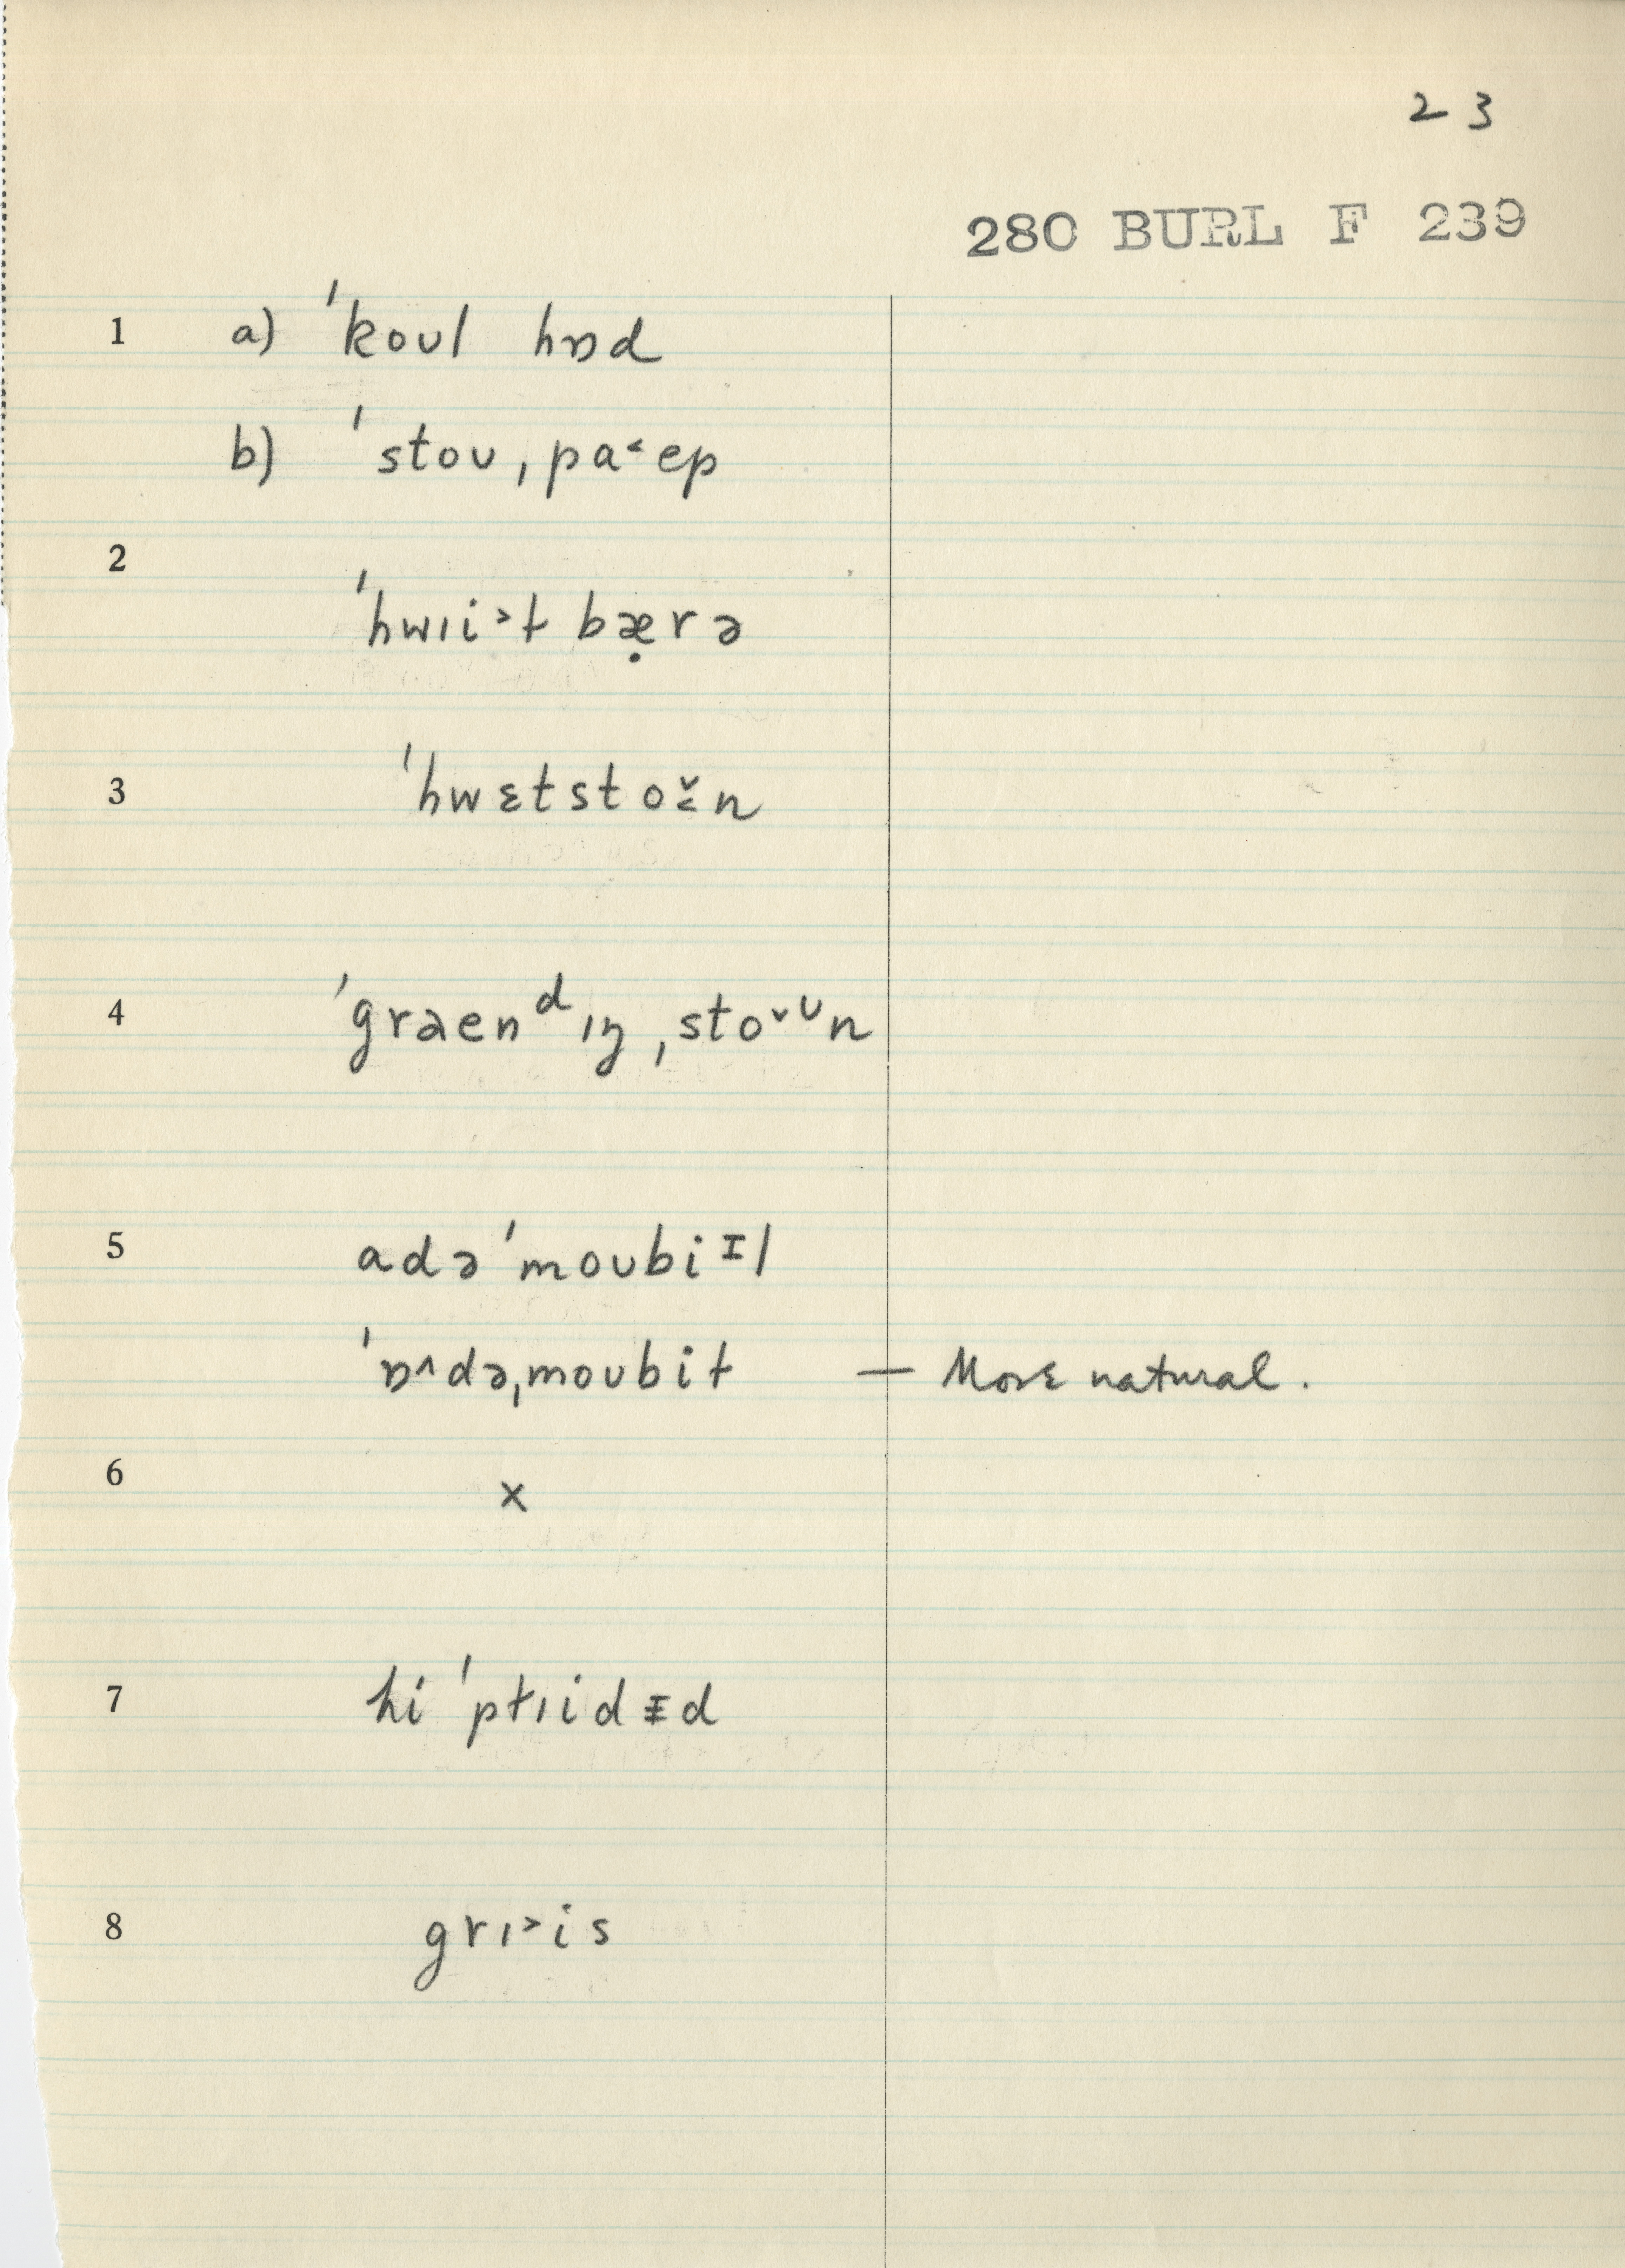 23
280 BURL F 239
1 a) ˈkoʊl hɒd
b) ˈstoʊˌpa˂ep
2
ˈhwɪi˃ɫ bæ̣rə
3 ˈhwɛtsto˂̌n
4 ˈgraenᵈɪŋˌstoˇᶷn
5 adəˈmoʊbiᶦl
ˈɒ˄dəˌmoʊbiɫ — More natural.
6 x
7 hi ˈpɫɪidᵻd
8 grɪ˃is